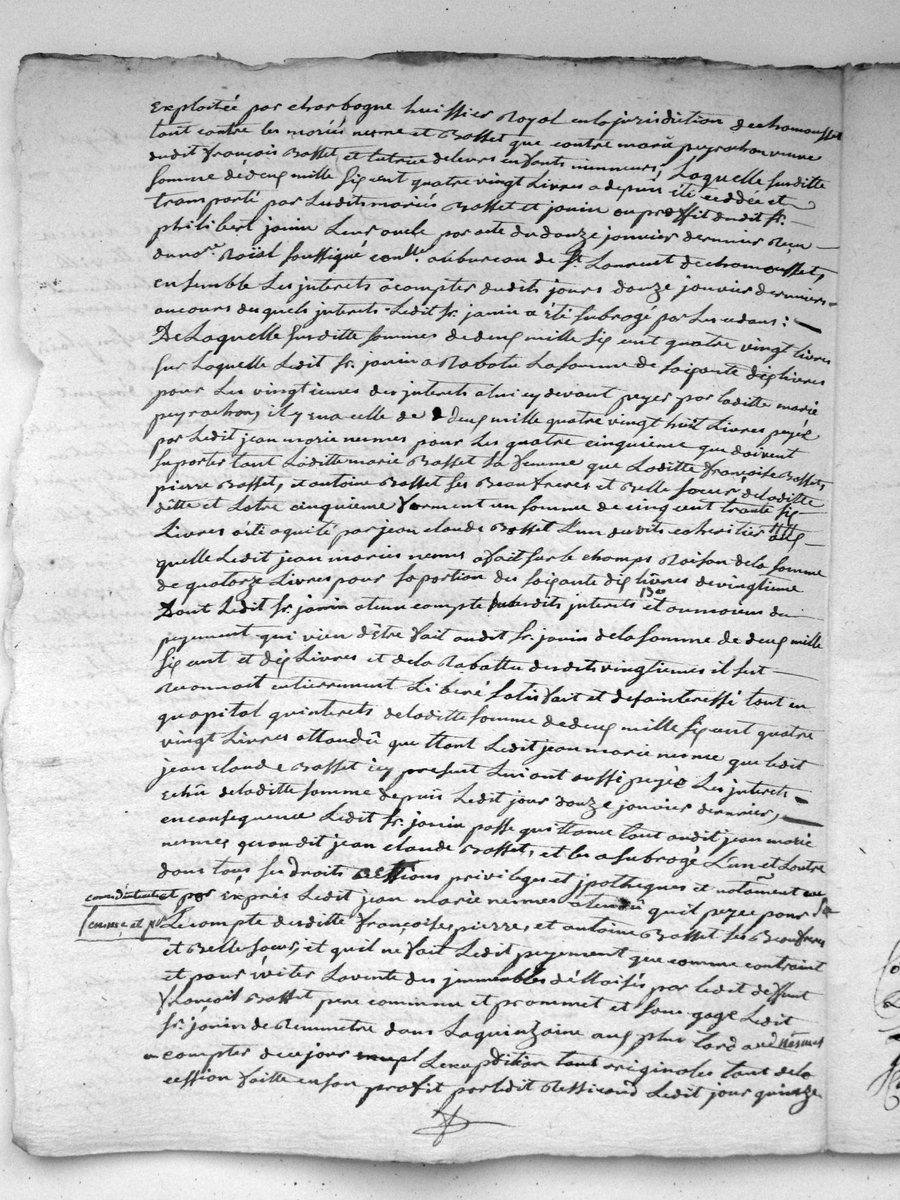 exploitée par charbogne huissier Royal en la jurisdiction de chamousset
tant contre les mariés nesme et Basset que contre marie peyrachon veuve
dudit françois Basset, et tutrice de leurs enfants mineurs, Laquelle susditte
somme de deux mille six cent quatre vingt Livres a depuis été ceddée et
transporté par Lesdits mariés Basset et janin au proffit dudit sr.
philibert janin Leur oncle par acte du douze janvier dernier Reçu
du nore. soussigné conllé. au bureau de St. Laurent de chamousset,
ensemble Les interets a compter dudits jours douze janvier derniers
au cours desquels interets Ledit sr. janin a été subrogé par Les cedans:
De Laquelle susditte sommes de deux mille six cent quatre vingt livres
sur Laquelle Ledit sr. janin a Rabatu La somme de soixante dix livres
pour Les vingtiemes des interets a lui cy devant payer par laditte marie
peyrachon, il y en a celle de deux mille quatre vingt huit Livres payés
par Ledit jean marie nesmes pour Les quatre cinquieme que doivent
suporter tant Laditte marie Basset sa femme que Laditte françoise Basset,
pierre Basset, et antoine Basset ses Beau freres et Belle soeur, de laditte
dette et Lotre cinquieme formant un somme de cinq cent trante six
Livres a été aquité par jean claude Basset L'un desdits coheritier
quelle Ledit jean maries nesmes a fait sur le champs Raison de la somme
de quatorze Livres pour sa portion des soixante dix livres de vingtieme
Dont Ledit sr. janin a tenu compte desdits interets et au moien du
payement qui vien d'être fait audit sr. janin de la somme de deux mille
six cent et dix Livres et de la Rabattu desdits vingtiemes il sest
Reconnoit entierrement Liberé satisfait et desainteressé tout en
quapital quinterets de laditte somme de deux mille six cent quatre
vingt Livres attandû que ttant Ledit jean marie nesmes que ledit
jean claude Basset icy present Lui ont aussi payés Les interets
echû de laditte somme depuis Ledit jour douze janvier dernier,
en consequence Ledit sr. janin passe quittance tant audit jean marie
nesmes quaudit jean claude Basset, et les a subrogé L'un et Lautre
dans tous ses droits actions privileges et ypotheques et notament
et par exprés Ledit jean marie nesmes atendû quil payee pour sa
femme et pr. Le compte desditte françoise, pierre, et antoine Basset ses Beau freres
et Belle soeur, et quil ne fait Ledit payement que comme contraint
et pour éviter La vente des jmmeubles délaissés par ledit deffunt
françois Basset pere commune et prommet et sous gage Ledit
sr. janin de Remmetre dans La quinzaine aux plus tard aud nesmes
compter de ce jour Lexpedition tant originales tant de la
cession faitte en son profit par ledit Ressicaud Ledit jour quinze